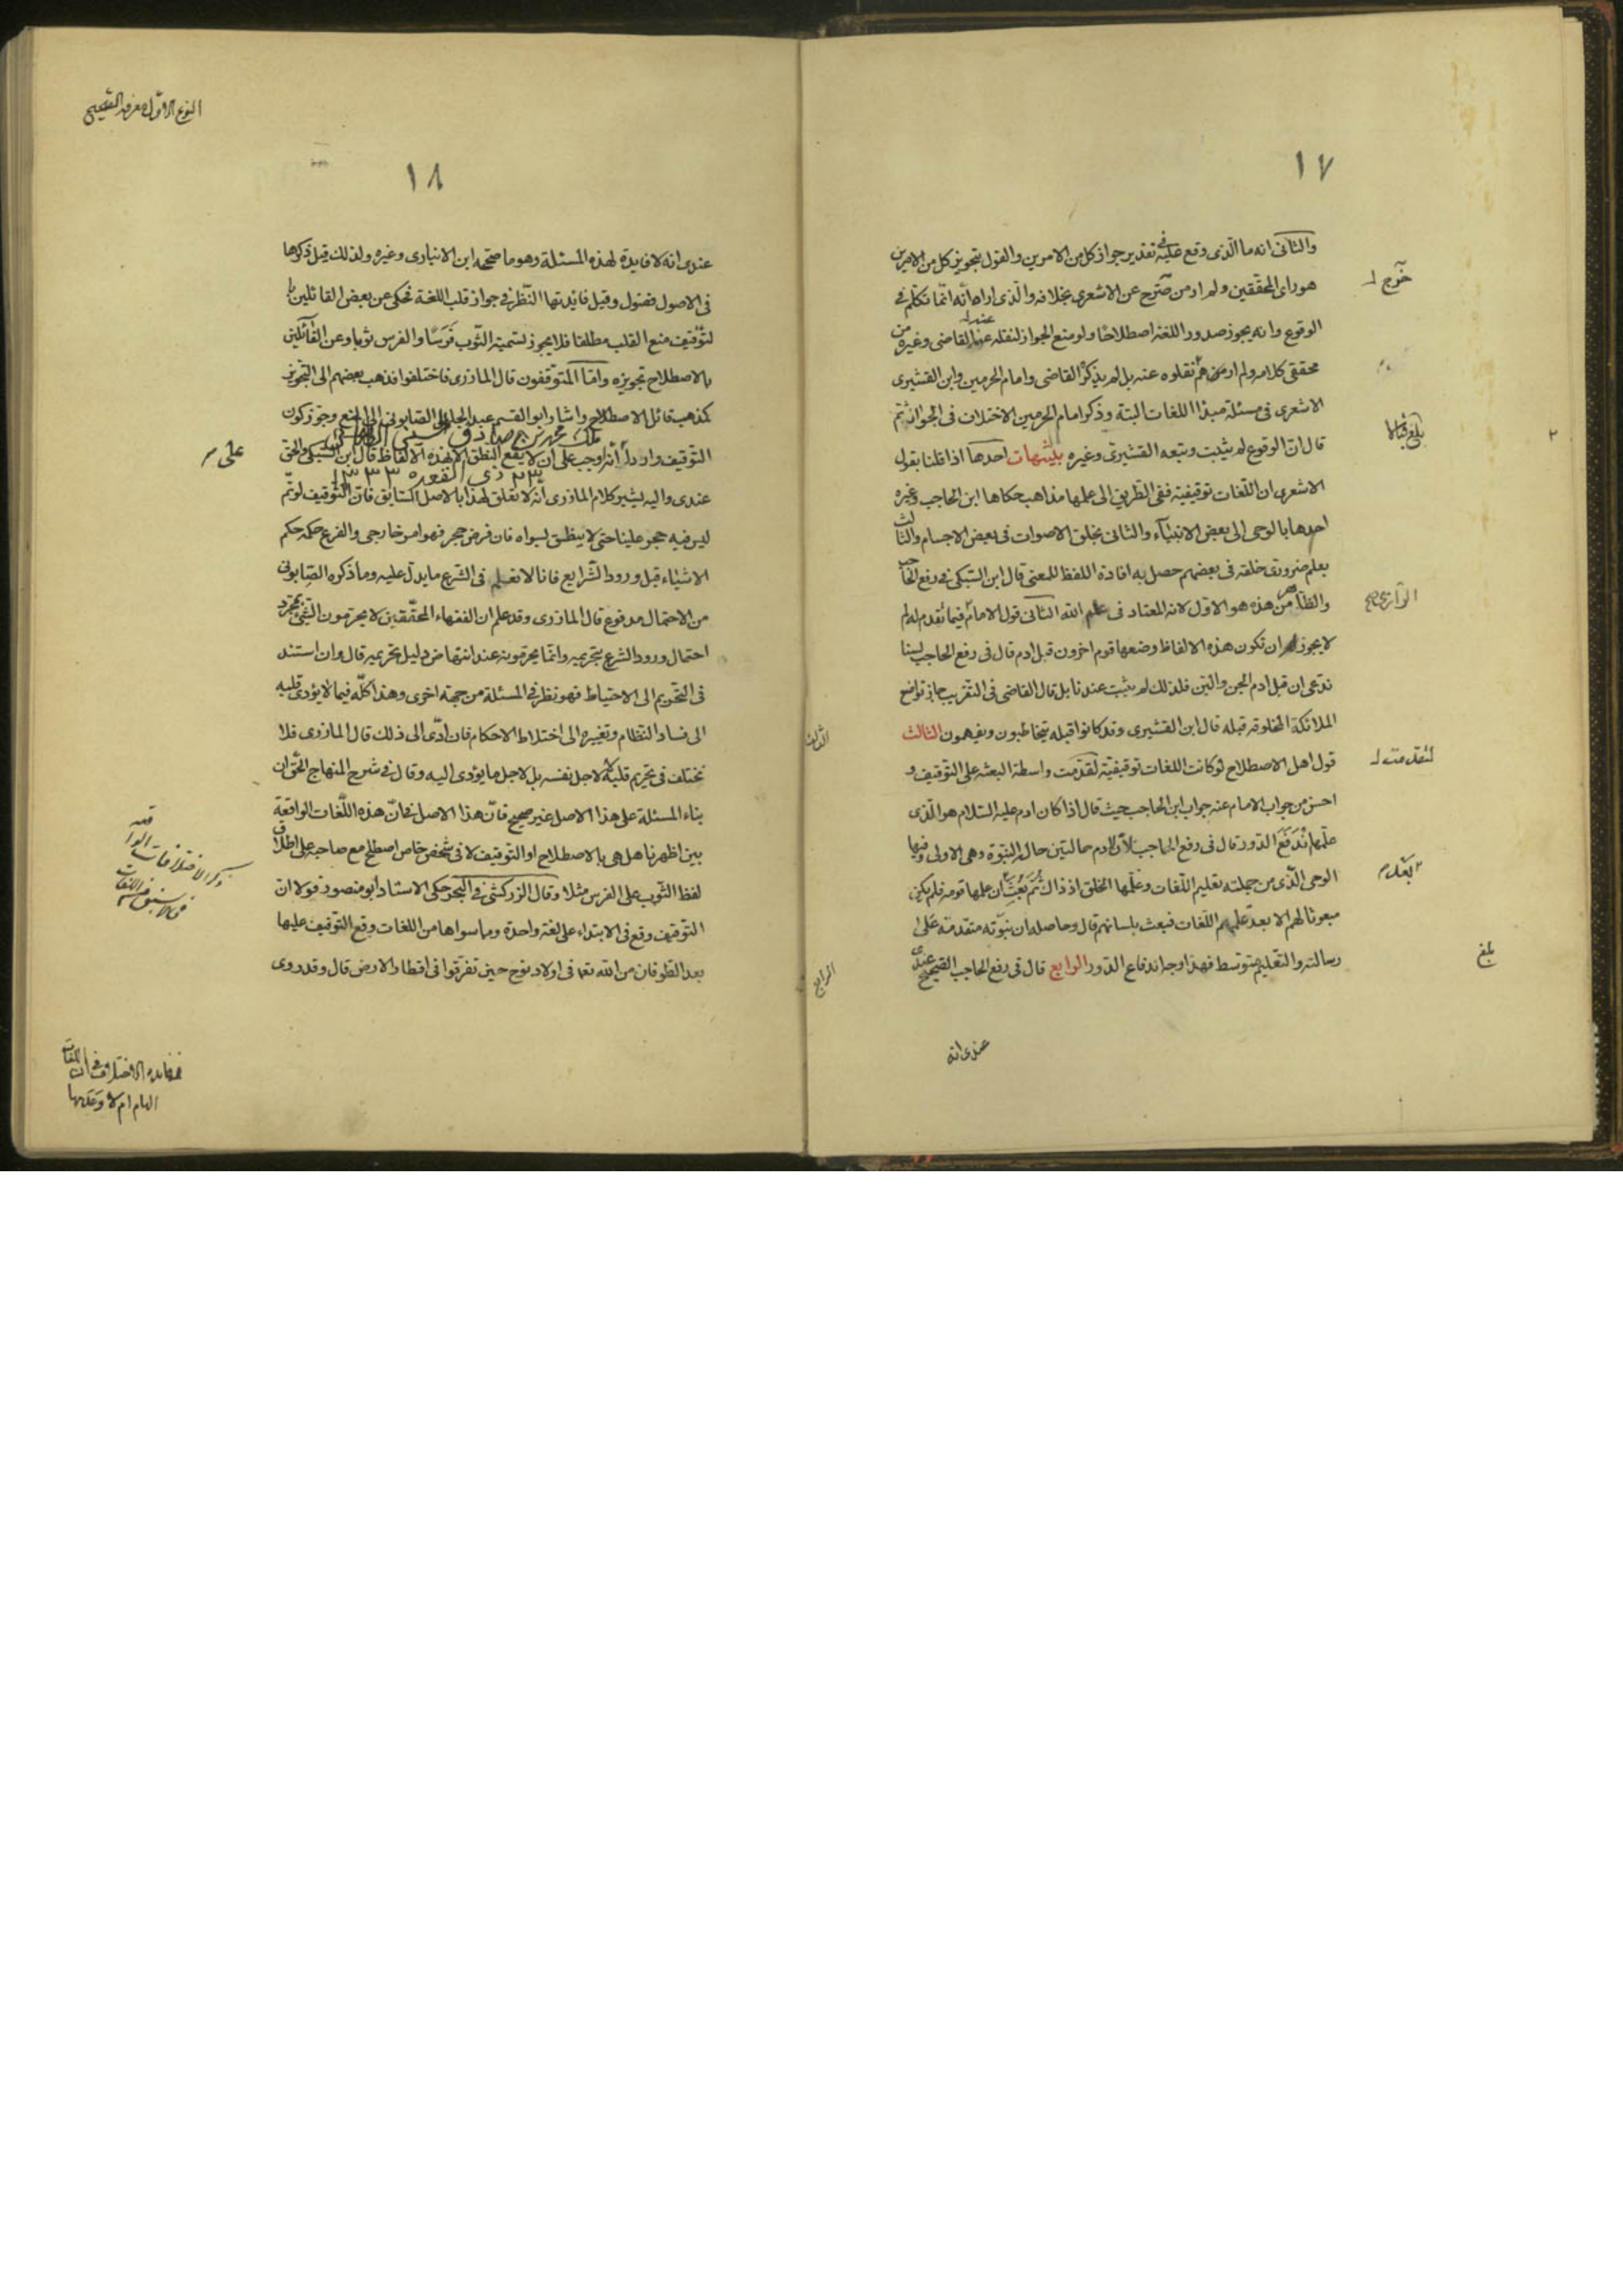 ١٧
والثانى انه ما الذى وقع فى تقدير جواز كل من الامرين والقول بتجويز كل من الامرين
هو راى المحققين ولم ار من صرح عن الاشعرى بخلافه والذى اراه أنه انما تكلم فى
الوقوع وانه يجوز صدور اللغة اصطلاحًا ولو منع الجواز لنقله عنه القاضى وغيره من
محققى كلامه ولم ارهم نقلوه عنه بل لم يذكر القاضى وامام الحرمين وابن القشيرى
الاشعرى فى مسئلة مبدأ اللغات البتة وذكر امام الحرمين الاختلاف فى الجواز ثم
قال ان الوقوع لم يثبت وتبعه القشيرى وغيره تنبيهات احدها اذا قلنا بقول
الاشعرى ان اللغات توقيفية ففى الطريق الى علمها مذاهب حكاها ابن الحاجب وغيره
احدها بالوحى الى بعض الانبياء والثانى بخلق الاصوات فى بعض الاجسام والثالث
بعلم ضرورى خلقه فى بعضهم حصل به افادة اللفظ للمعنى قال ابن السبكى فى رفع الحاجب
والظاهر من هذه هو الاول لانه المعتاد فى علم الله الثانى قول الامام فيما تقدم لم
لا يجوز ان تكون هذه الالفاظ وضعها قوم اخرون قبل ادم قال فى رفع الحاجب لسنا
ندعى ان قبل ادم الجن والبن فلذلك لم يثبت عندنا بل قال القاضى فى التقريب جاز تواضع
الملائكة المخلوقة قبله قال ابن القشيرى وقد كانوا قبله يتخاطبون ويفهمون الثالث
قول اهل الاصطلاح لو كانت اللغات توقيفية لتقدمت واسطة البعثة على التوقيف و
احسن من جواب الامام عنه جواب ابن الحاجب حيث قال اذا كان ادم عليه السلام هو الذى
علمها اندفع الدور قال فى رفع الحاجب لان لادم حالتين حال النبوة وهى الاولى وفيها
الوحى الذى من جملته تعليم اللغات وعلمها الخلق اذ ذاك ثم بعث ان علمها قومه فلم يكن
مبعوثا لهم الا بعد علمهم اللغات فبعث بلسانهم قال وحاصله ان نبوته متقدمة على
رسالته والتعليم متوسط فهذا وجه اندفاع الدور الرابع قال فى رفع الحاجب الصحيح عندى
عندى انه
بلغ
الثالث
الرابع
النوع الاول معرفة الصحيح
١٨
عندى انه لا فايدة لهذه المسئلة وهو ما صححه ابن الانبارى وغيره ولذلك قيل ذكرها
فى الاصول فضول وقيل فائدتها النظر فى جواز قلب اللغة فحكى عن بعض القائلين با
لتوقيف منع القلب مطلقا فلا يجوز تسمية الثوب فرسًا والفرس ثوبا وعن القائلين
بالاصطلاح تجويزه واما المتوقفون قال المازرى فاختلفوا فذهب بعضهم الى التجويز
كمذهب قائل الاصطلاح واشار ابو القسم عبد الجليل الصابونى الى المنع وجوز كون
التوقيف واردا أنه وجب على ان لا يقع النطق الا بهذه الالفاظ قال ابن السبكى والحق
٢٣ ذى القعدة ١٣٣٣
عندى واليه يشير كلام المازرى انه لا تعلق لهذا بالاصل السابق فان التوقيف لو تم
ليس فيه حجر علينا حتى لا ينطق بسواه فان فرض حجر فهو امر خارجى والفرع حكمه حكم
الاشياء قبل ورود الشرايع فانا لا نعلم فى الشرع ما يدل عليه وما ذكره الصابونى
من الاحتمال مدفوع قال المازرى وقد علم ان الفقهاء المحققين لا يحرمون الشئ بمجرد
احتمال ورود الشرع بتحريمه وانما يحرمونه عند انتهاض دليل تحريمه قال وان استند
فى التحريم الى الاحتياط فهو نظر فى المسئلة من جهة اخرى وهذا كله فيما لا يؤدى قلبه
الى فساد النظام وتغييره الى اختلاط الاحكام فان ادى الى ذلك قال المازرى فلا
نختلف فى تحريم قلبه لا لاجل نفسه بل لاجل ما يؤدى اليه وقال فى شرح المنهاج الحق ان
بناء المسئلة على هذا الاصل غير صحيح فان هذا الاصل فى ان هذه اللغات الواقعة
بين اظهرنا هل هى بالاصطلاح او التوقيف لا فى شخص خاص اصطلح مع صاحبه على اطلاق
لفظ الثوب على الفرس مثلا وقال الزركشى فى البحر حكى الاستاد أبو منصور قولا ان
التوقيف وقع فى الابتداء على لغة واحدة وما سواها من اللغات وقع التوقيف عليها
بعد الطوفان من الله تعالى فى اولاد نوح حين تفرقوا فى اقطار الارض قال وقد روى